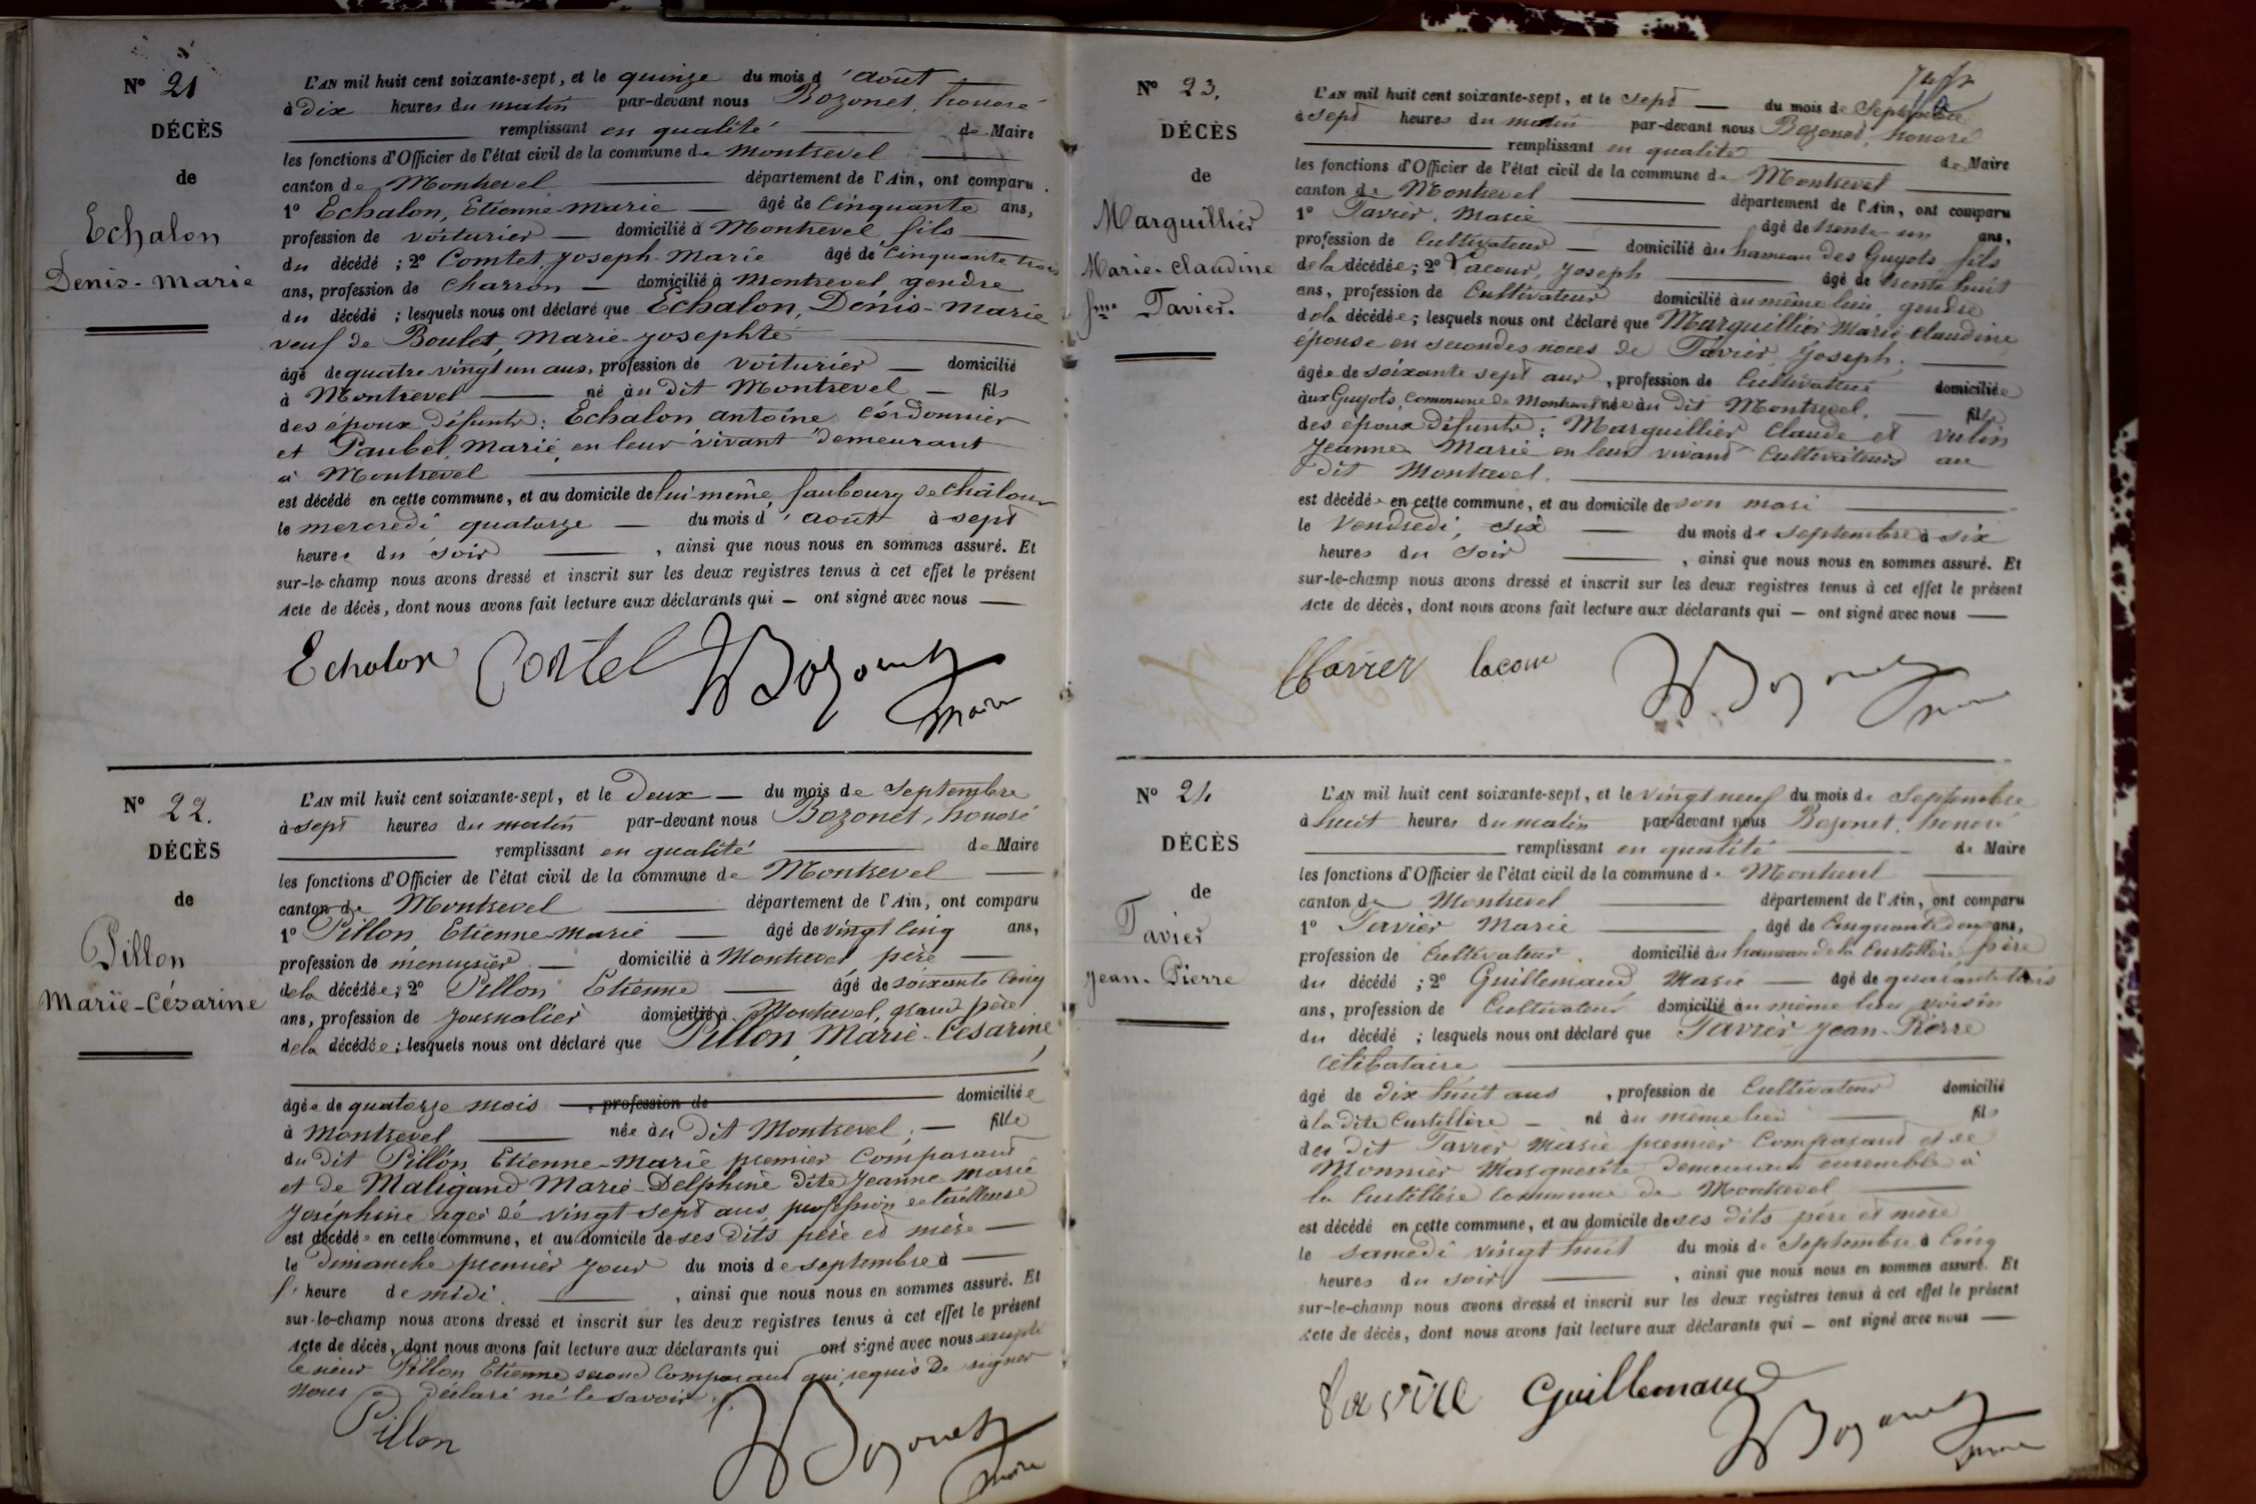 N° 21
DÉCÈS
de
Echalon
Denis-Marie
L'AN mil huit cent soixante-sept, et le quinze du mois d'août
à dix heures du matin par-devant nous Bozonet, honoré
remplissant en qualité de Maire
les fonctions d'Officier de l'état civil de la commune de Montrevel
canton de Montrevel département de l'Ain, ont comparu
1° Echalon, Etienne-Marie âgé de cinquante ans,
profession de voiturier domicilié à Montrevel fils
du décédé ; 2° Comtet, Joseph-Marie âgé de cinquante trois
ans, profession de charron domicilié à Montrevel, gendre
du décédé ; lesquels nous ont déclaré que Echalon, Denis-Marie
veuf de Boulet, Marie-Josephte
âgé de quatre vingt un ans, profession de voiturier domicilié
à Montrevel né au dit Montrevel fils
des époux défunts : Echalon antoine cordonnier
et Paubel, Marie, en leur vivant demeurant
à Montrevel
est décédé en cette commune, et au domicile de lui même, faubourg de Châlons
le mercredi quatorze du mois d'août à sept
heures du soir, ainsi que nous nous en sommes assuré. Et
sur-le-champ nous avons dressé et inscrit sur les deux registres tenus à cet effet le présent
Acte de décès, dont nous avons fait lecture aux déclarants qui — ont signé avec nous
Echalon Comtet Bozonet
Maire
N° 22.
DÉCÈS
de
Pillon
Marie-Césarine
L'AN mil huit cent soixante-sept, et le deux du mois de Septembre
à sept heures du matin par-devant nous Bozonet, honoré
remplissant en qualité de Maire
les fonctions d'Officier de l'état civil de la commune de Montrevel
canton de Montrevel département de l'Ain, ont comparu
1° Pillon Etienne-Marie âgé de vingt cinq ans,
profession de menuisier domicilié à Montrevel père
de la décédée ; 2° Pillon Etienne âgé de soixante cinq
ans, profession de journalier domicilié à Montrevel, grand père
de la décédée ; lesquels nous ont déclaré que Pillon, Marie-Césarine,
âgée de quatorze mois, profession de domiciliée
à Montrevel née au dit Montrevel ; fille
du dit Pillon, Etienne-Marie premier comparant
et de Maligand Marie-Delphine dite Jeanne Marie
Joséphine agée de vingt sept ans, profession de tailleuse
est décédée en cette commune, et au domicile de ses dits père et mère
le dimanche premier jour du mois de septembre à
l'heure de midi, ainsi que nous nous en sommes assuré. Et
sur-le-champ nous avons dressé et inscrit sur les deux registres tenus à cet effet le présent
Acte de décès, dont nous avons fait lecture aux déclarants qui ont signé avec nous excepté
le sieur Pillon Etienne second comparant qui, requis de signer
nous a déclaré ne le savoir.
Pillon Bozonet
Maire
N° 23.
DÉCÈS
de
Marguillier
Marie-Claudine
fme Tavier.
L'AN mil huit cent soixante-sept, et le sept du mois de Septembre
à sept heures du matin par-devant nous Bozonet, honoré
remplissant en qualité de Maire
les fonctions d'Officier de l'état civil de la commune de Montrevel
canton de Montrevel département de l'Ain, ont comparu
1° Tavier, Marie âgé de trente un ans,
profession de cultivateur domicilié au hameau des Guyots fils
de la décédée ; 2° Lacour, Joseph âgé de trente huit
ans, profession de cultivateur domicilié au même lieu, gendre
de la décédée ; lesquels nous ont déclaré que Marguillier Marie-Claudine
épouse en secondes noces de Tavier, Joseph,
âgée de soixante sept ans, profession de cultivateur domiciliée
aux Guyots, commune de Montrevel née au dit Montrevel, fille
des époux défunts : Marguillier Claude et Vulin
Jeanne Marie en leur vivant cultivateurs au
dit Montrevel.
est décédée en cette commune, et au domicile de son mari
le vendredi, six du mois de septembre à six
heures du soir, ainsi que nous nous en sommes assuré. Et
sur-le-champ nous avons dressé et inscrit sur les deux registres tenus à cet effet le présent
Acte de décès, dont nous avons fait lecture aux déclarants qui — ont signé avec nous
tavier lacour Bozonet
N° 24
DÉCÈS
de
Tavier
Jean-Pierre
L'AN mil huit cent soixante-sept, et le vingt neuf du mois de Septembre
à huit heures du matin par-devant nous Bozonet, honoré
remplissant en qualité de Maire
les fonctions d'Officier de l'état civil de la commune de Montrevel
canton de Montrevel département de l'Ain, ont comparu
1° Tavier Marie âgé de cinquante deux ans,
profession de cultivateur, domicilié au hameau de la Custillère, père
du décédé ; 2° Guillemaud Marie âgé de quarante trois
ans, profession de cultivateur domicilié au même lieu voisin
du décédé ; lesquels nous ont déclaré que Tavier Jean-Pierre
célibataire
âgé de dix huit ans, profession de cultivateur domicilié
à la dite Custillère né au même lieu fils
des dit Tavier Marie premier comparant et de
Monnier Marguerite demeurant ensemble à
la Custillère commune de Montrevel
est décédé en cette commune, et au domicile de ses dits père et mère
le samedi vingt huit du mois de septembre à cinq
heures du soir, ainsi que nous nous en sommes assuré. Et
sur-le-champ nous avons dressé et inscrit sur les deux registres tenus à cet effet le présent
Acte de décès, dont nous avons fait lecture aux déclarants qui — ont signé avec nous
Guillemaud Bozonet